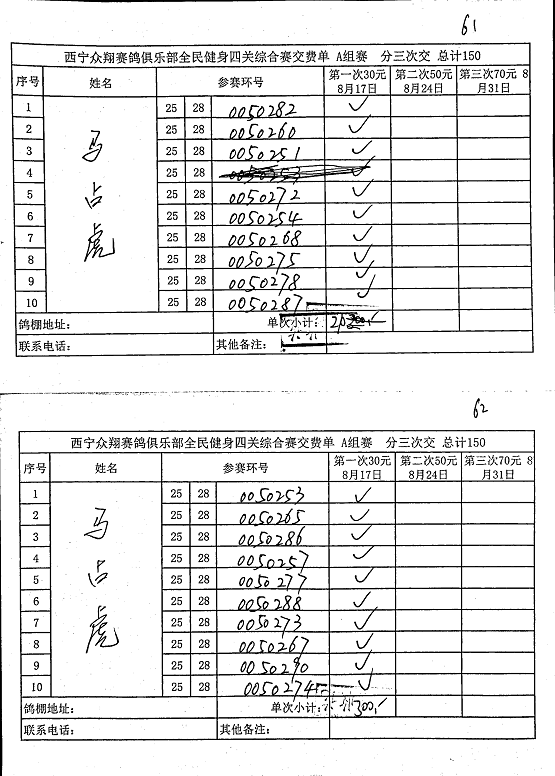 61
西宁众翔赛鸽俱乐部全民健身四关综合赛交费单 A组赛 分三次交 总计150
序号 姓名 参赛环号 第一次30元 8月17日 第二次50元 8月24日 第三次70元 8月31日
马占虎
1 25 28 0050282 ✓
2 25 28 0050260 ✓
3 25 28 0050251 ✓
4 25 28 ✓
5 25 28 0050272 ✓
6 25 28 0050254 ✓
7 25 28 0050268 ✓
8 25 28 0050275 ✓
9 25 28 0050278 ✓
10 25 28 0050287 ✓
鸽棚地址： 单次小计：
联系电话： 其他备注：
62
西宁众翔赛鸽俱乐部全民健身四关综合赛交费单 A组赛 分三次交 总计150
序号 姓名 参赛环号 第一次30元 8月17日 第二次50元 8月24日 第三次70元 8月31日
马占虎
1 25 28 0050253 ✓
2 25 28 0050265 ✓
3 25 28 0050286 ✓
4 25 28 0050257 ✓
5 25 28 0050277 ✓
6 25 28 0050288 ✓
7 25 28 0050273 ✓
8 25 28 0050267 ✓
9 25 28 0050290 ✓
10 25 28 0050274 ✓
鸽棚地址： 单次小计： 300
联系电话： 其他备注：